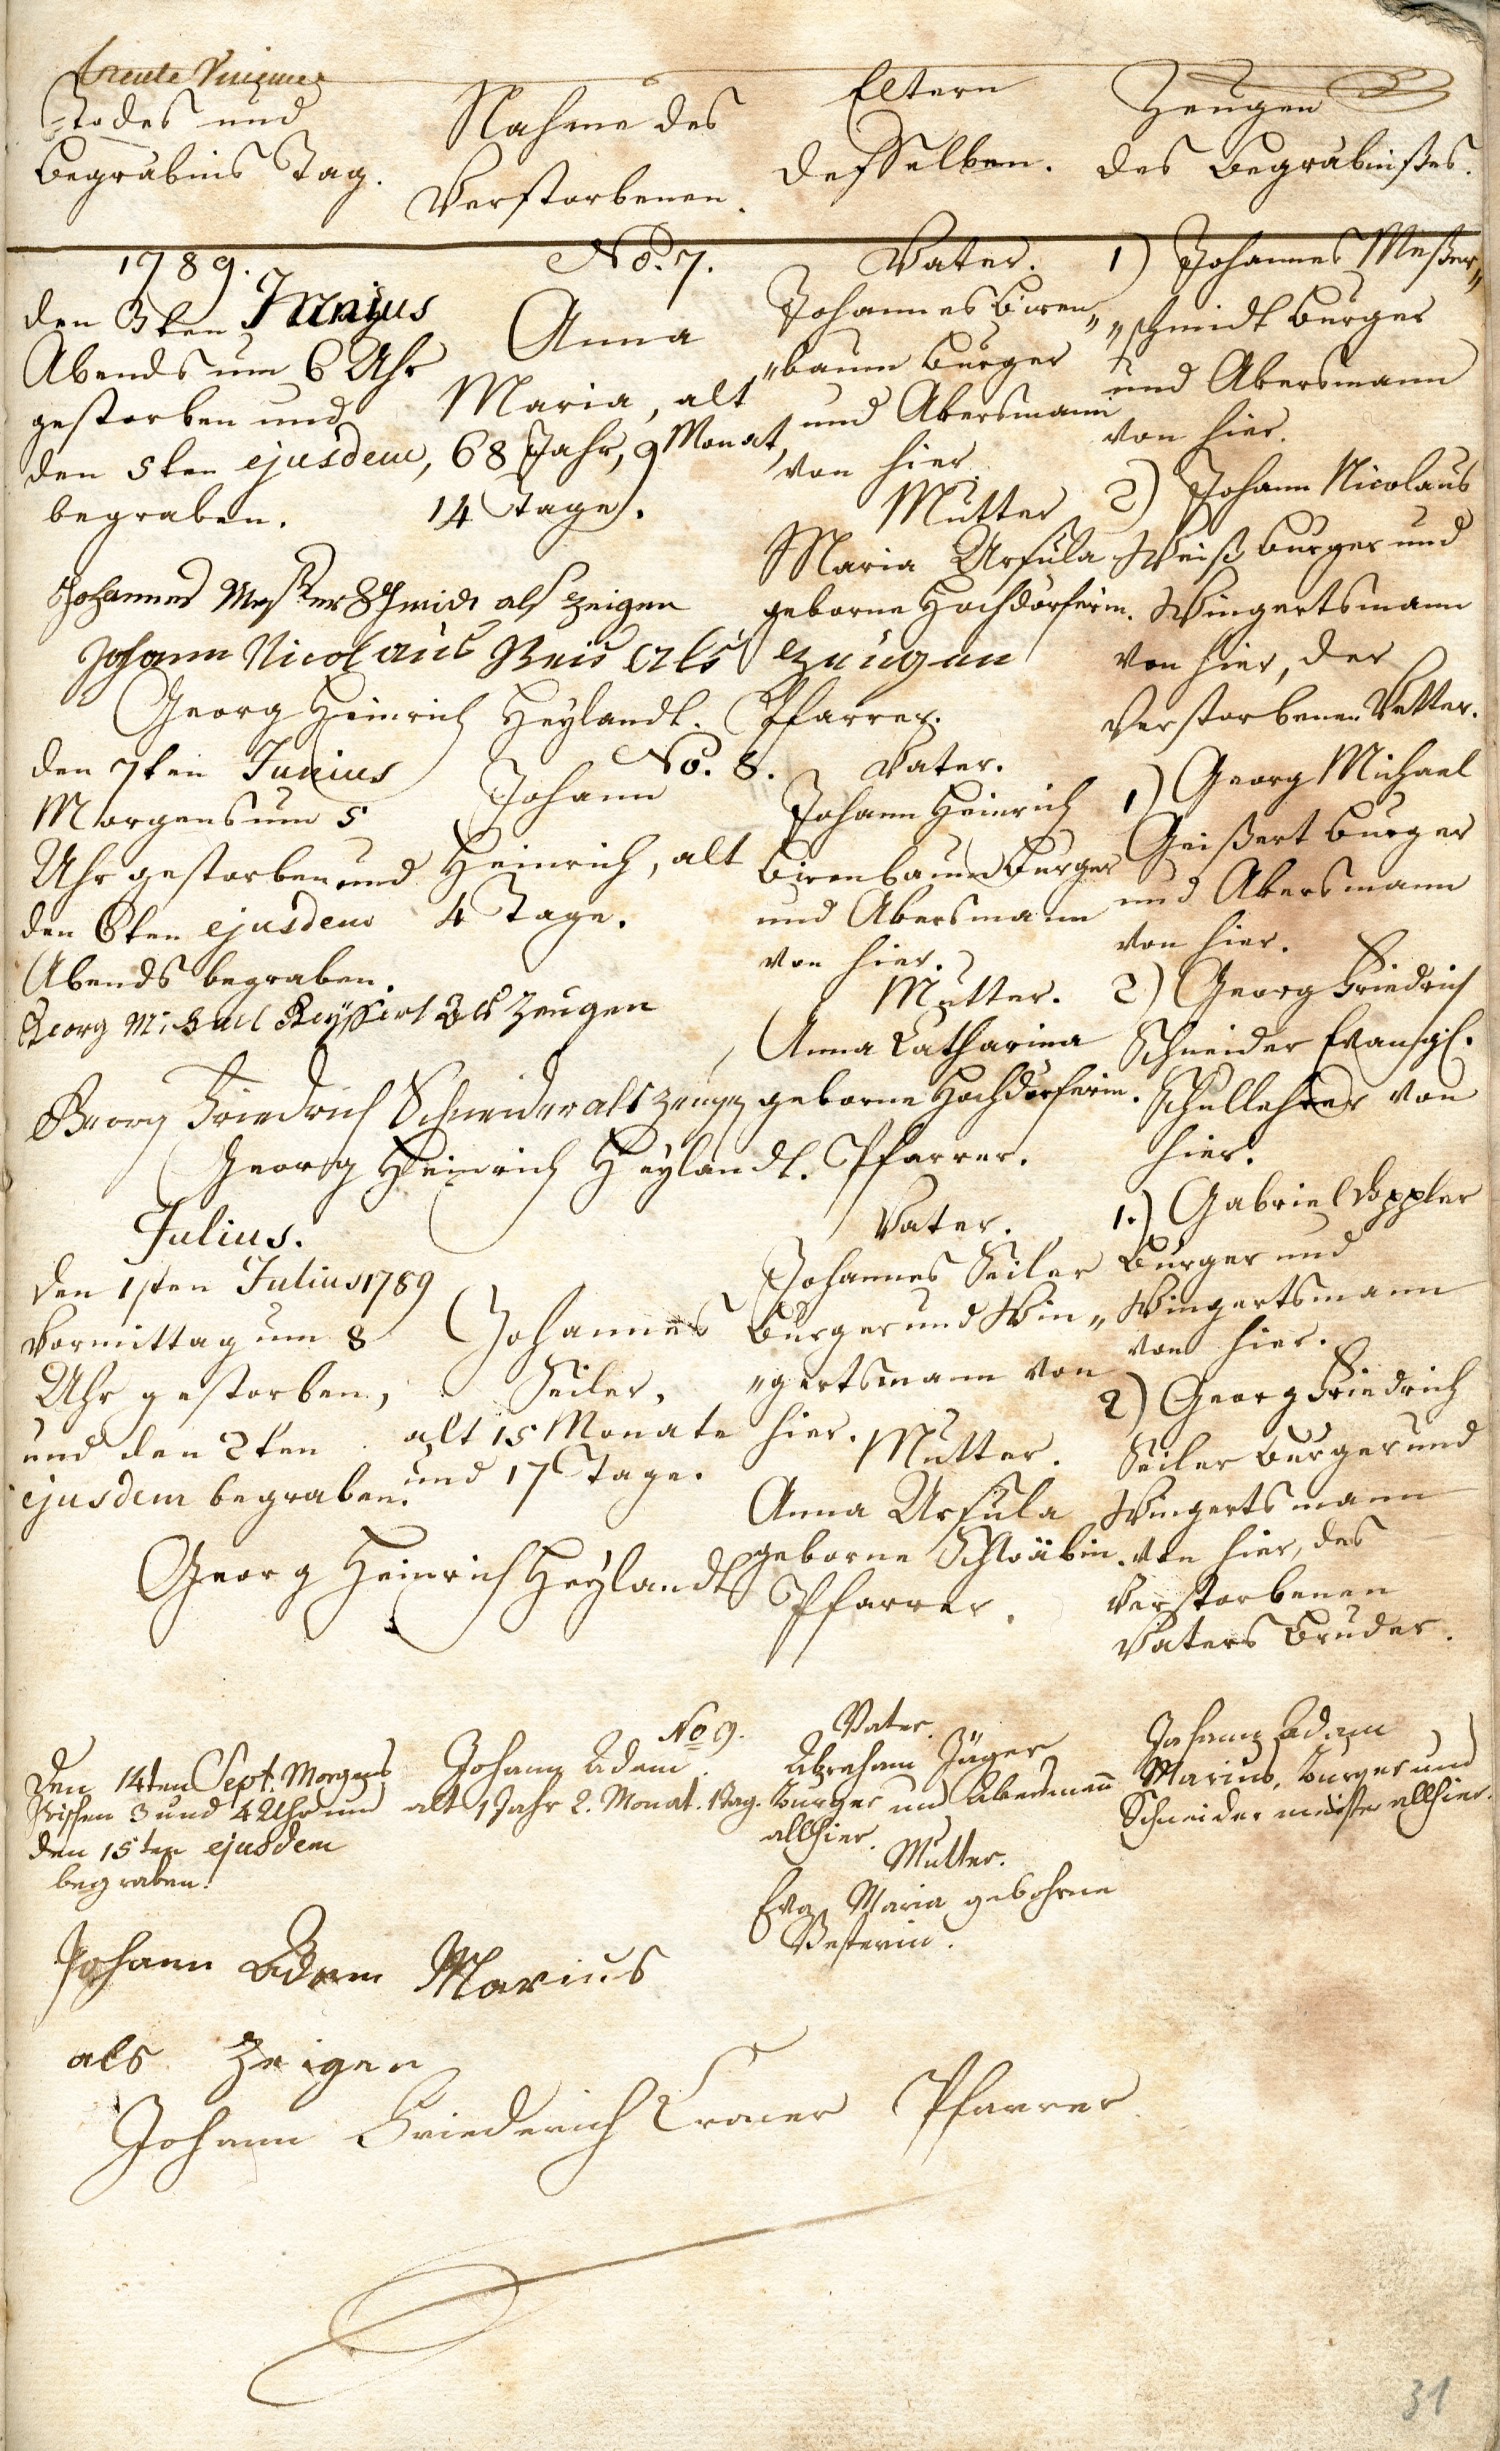 trente Unieme
Todes und
Begräbnis Tag.
Nahme des
Verstorbenen.
Eltern
desselben.
Zeugen
des Begräbnißes.
1789.
den 3ten Junius
Abends um 6 Uhr
gestorben und
den 5ten ejusdem,
begraben.
No. 7.
Anna
Maria, alt
68 Jahr, 9 Monat,
14 Tage.
Vater.
Johannes Biren„
„baum Burger
und Akersmann
von hier.
Mutter
Maria Ursula
geborne Hochdörferin.
1) Johannes Meßer„
„schmidt Burger
und Akersmann
von hier.
2) Johann Nicolaus
Weiß Burger und
Wingertsmann
von hier, der
Verstorbenen Vetter.
Johannes Messerschmidt als zeigen
Johann Nicolaus Weis als zeugen
Georg Heinrich Heylandt. Pfarrer.
den 7ten Junius
Morgens um 5
Uhr gestorben und
den 8ten ejusdem
Abends begraben.
No. 8.
Johann
Heinrich, alt
4 Tage.
Vater.
Johann Heinrich
Birenbaum Burger
und Akersmann
von hier.
Mutter.
Anna Catharina
geborne Hochdörferin.
1) Georg Michael
Geißert Burger
und Akersmann
von hier.
2) Georg Friedrich
Schneider Evangl.
Schullehrer von
hier.
Georg Michael Geyssert als Zeugen
Georg Friedrich Schneider als zeuge
Georg Heinrich Heylandt. Pfarrer.
Julius.
den 1sten Julius 1789
Vormittag um 8
Uhr gestorben,
und den 2ten
ejusdem begraben.
Johannes
Seiler,
alt 15 Monate
und 17 Tage.
Vater.
Johannes Seiler
Burger und Win„
„gertsmann von
hier.
Mutter.
Anna Ursula
geborne Schwäbin.
1.) Gabriel Doppler
Burger und
Wingertsmann
von hier.
2) Georg Friedrich
Seiler Burger und
Wingertsmann
von hier, des
Verstorbenen
Vaters Bruder.
Georg Heinrich Heylandt
Pfarrer.
Den 14ten Sept. Morgens
zwischen 3 und 4 Uhr und
den 15ten ejusdem
begraben.
No 9.
Johann Adam.
alt 1 Jahr 2. Monat. 1 Tag.
Vater.
Abraham Jäger
Burger und Akersmann
allhier.
Mutter.
Eva Maria gebohrne
Johann Adam
Marius, Burger und
Schneidermeister allhier.
Johann Adam Marius
als Zeigen
Johann Friederich Cramer Pfarrer
31